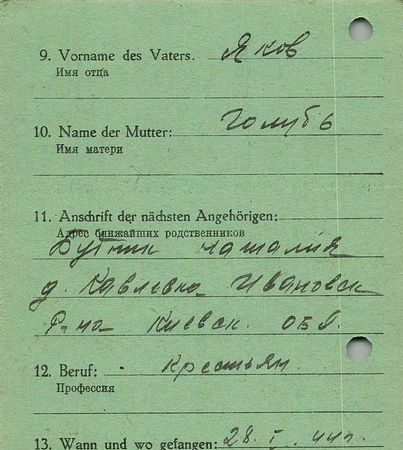 9. Vorname des Vaters. Яков
Имя отца
10. Name der Mutter: Голубь
Имя матери
11. Anschrift der nächsten Angehörigen:
Адрес ближайших родственников
Наталия
д. Ивановск
р-на Киевск. обл.
12. Beruf: крестьян.
Профессия
13. Wann und wo gefangen: 28. I. 44г.